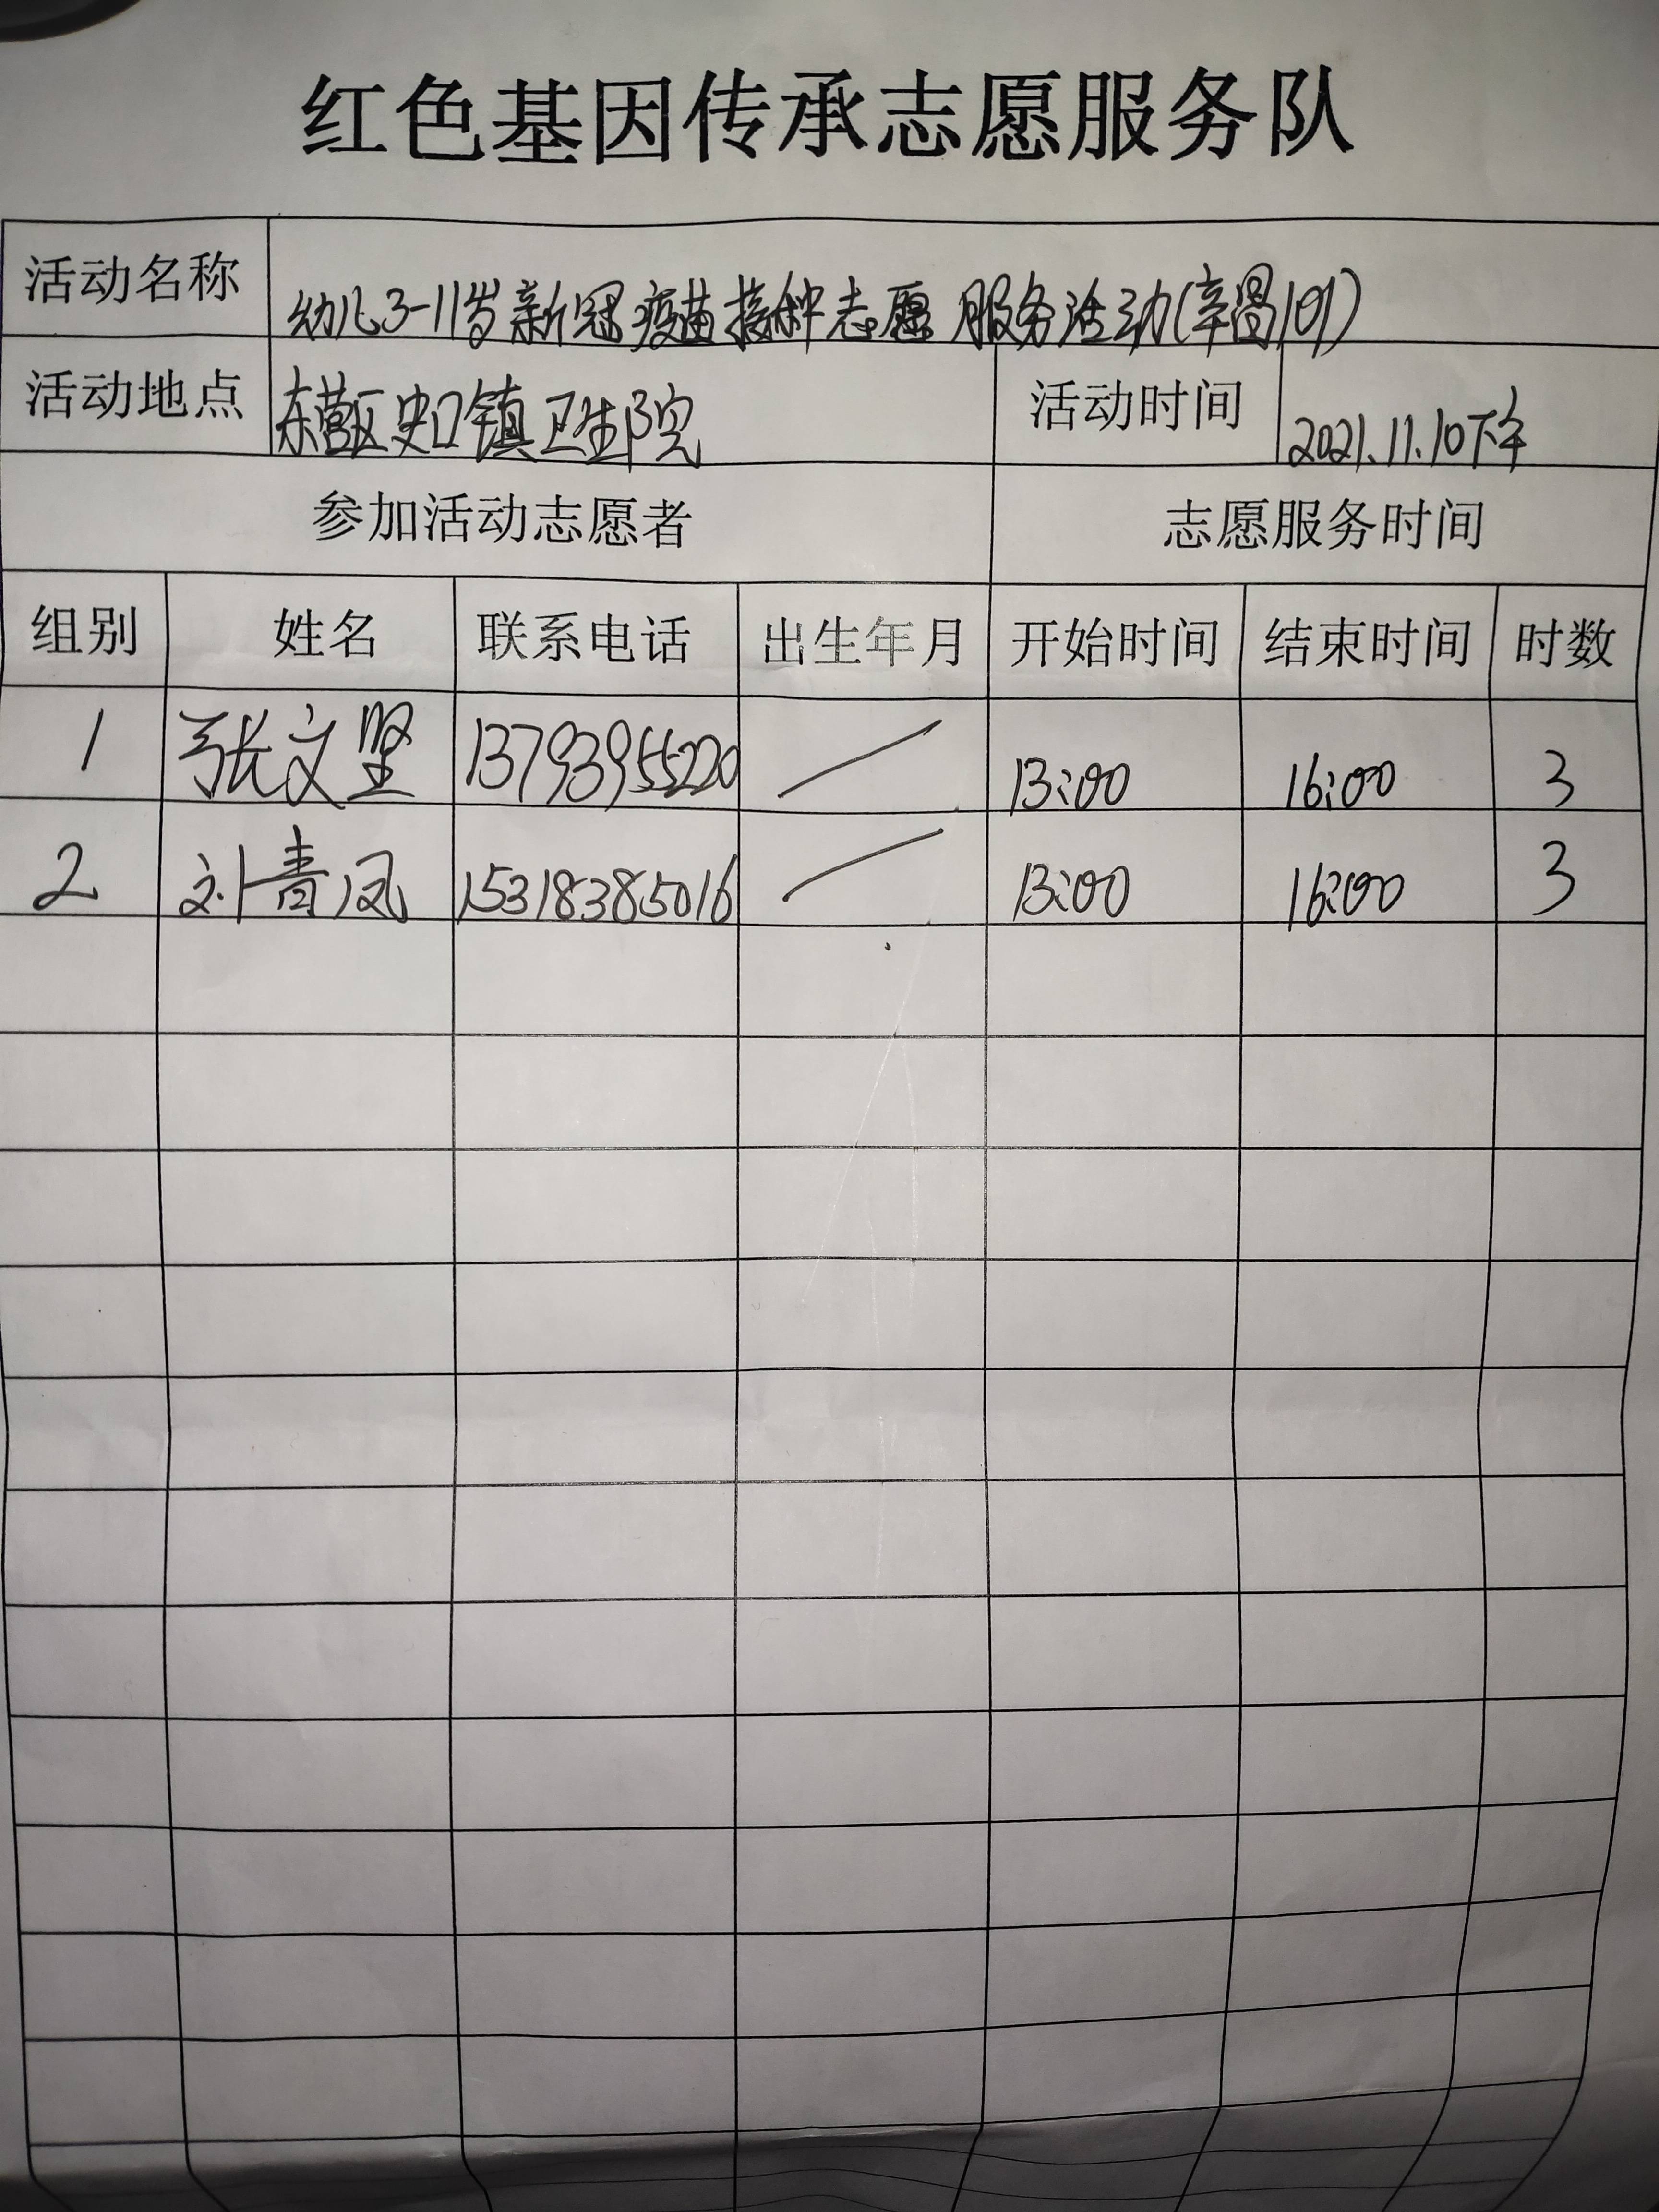 红色基因传承志愿服务队
活动名称 幼儿3-11岁新冠疫苗接种志愿服务活动(辛店101)
活动地点 东营区史口镇卫生院 活动时间 2021.11.10下午
参加活动志愿者 志愿服务时间
组别 姓名 联系电话 出生年月 开始时间 结束时间 时数
1 张文坚 13793955220 / 13:00 16:00 3
2 刘青凤 15318385016 / 13:00 16:00 3